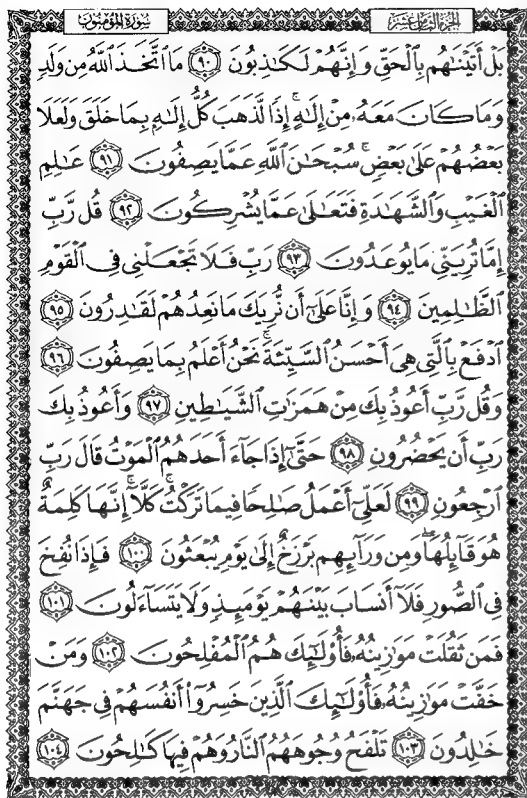 سُورَةُ المؤمِنُون
الجزء الثامن عشر
بَلۡ أَتَيۡنَٰهُم بِٱلۡحَقِّ وَإِنَّهُمۡ لَكَٰذِبُونَ ٩٠ مَا ٱتَّخَذَ ٱللَّهُ مِن وَلَدٖ
وَمَا كَانَ مَعَهُۥ مِنۡ إِلَٰهٍۚ إِذٗا لَّذَهَبَ كُلُّ إِلَٰهِۭ بِمَا خَلَقَ وَلَعَلَا
بَعۡضُهُمۡ عَلَىٰ بَعۡضٖۚ سُبۡحَٰنَ ٱللَّهِ عَمَّا يَصِفُونَ ٩١ عَٰلِمِ
ٱلۡغَيۡبِ وَٱلشَّهَٰدَةِ فَتَعَٰلَىٰ عَمَّا يُشۡرِكُونَ ٩٢ قُل رَّبِّ
إِمَّا تُرِيَنِّي مَا يُوعَدُونَ ٩٣ رَبِّ فَلَا تَجۡعَلۡنِي فِي ٱلۡقَوۡمِ
ٱلظَّٰلِمِينَ ٩٤ وَإِنَّا عَلَىٰٓ أَن نُّرِيَكَ مَا نَعِدُهُمۡ لَقَٰدِرُونَ ٩٥
ٱدۡفَعۡ بِٱلَّتِي هِيَ أَحۡسَنُ ٱلسَّيِّئَةَۚ نَحۡنُ أَعۡلَمُ بِمَا يَصِفُونَ ٩٦
وَقُل رَّبِّ أَعُوذُ بِكَ مِنۡ هَمَزَٰتِ ٱلشَّيَٰطِينِ ٩٧ وَأَعُوذُ بِكَ
رَبِّ أَن يَحۡضُرُونِ ٩٨ حَتَّىٰٓ إِذَا جَآءَ أَحَدَهُمُ ٱلۡمَوۡتُ قَالَ رَبِّ
ٱرۡجِعُونِ ٩٩ لَعَلِّيٓ أَعۡمَلُ صَٰلِحٗا فِيمَا تَرَكۡتُۚ كَلَّآۚ إِنَّهَا كَلِمَةٌ
هُوَ قَآئِلُهَاۖ وَمِن وَرَآئِهِم بَرۡزَخٌ إِلَىٰ يَوۡمِ يُبۡعَثُونَ ١٠٠ فَإِذَا نُفِخَ
فِي ٱلصُّورِ فَلَآ أَنسَابَ بَيۡنَهُمۡ يَوۡمَئِذٖ وَلَا يَتَسَآءَلُونَ ١٠١
فَمَن ثَقُلَتۡ مَوَٰزِينُهُۥ فَأُوْلَٰٓئِكَ هُمُ ٱلۡمُفۡلِحُونَ ١٠٢ وَمَنۡ
خَفَّتۡ مَوَٰزِينُهُۥ فَأُوْلَٰٓئِكَ ٱلَّذِينَ خَسِرُوٓاْ أَنفُسَهُمۡ فِي جَهَنَّمَ
خَٰلِدُونَ ١٠٣ تَلۡفَحُ وُجُوهَهُمُ ٱلنَّارُ وَهُمۡ فِيهَا كَٰلِحُونَ ١٠٤